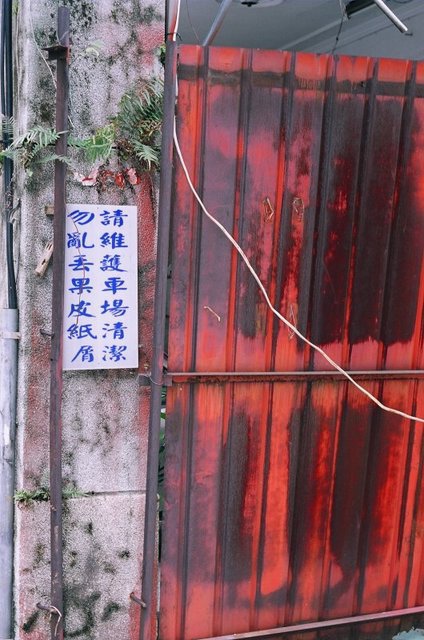 請維護車場清潔
勿亂丟果皮紙屑